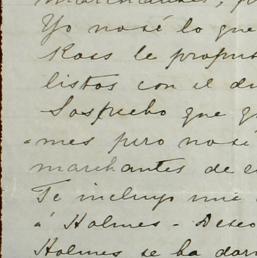 marchantes, p
Yo no sé lo que
Ross le propu
listos con el di
Sospecho que q
mes pero no sé
marchantes de c
Te incluyo una
á Holmes - Deseo
Holmes se ha dar